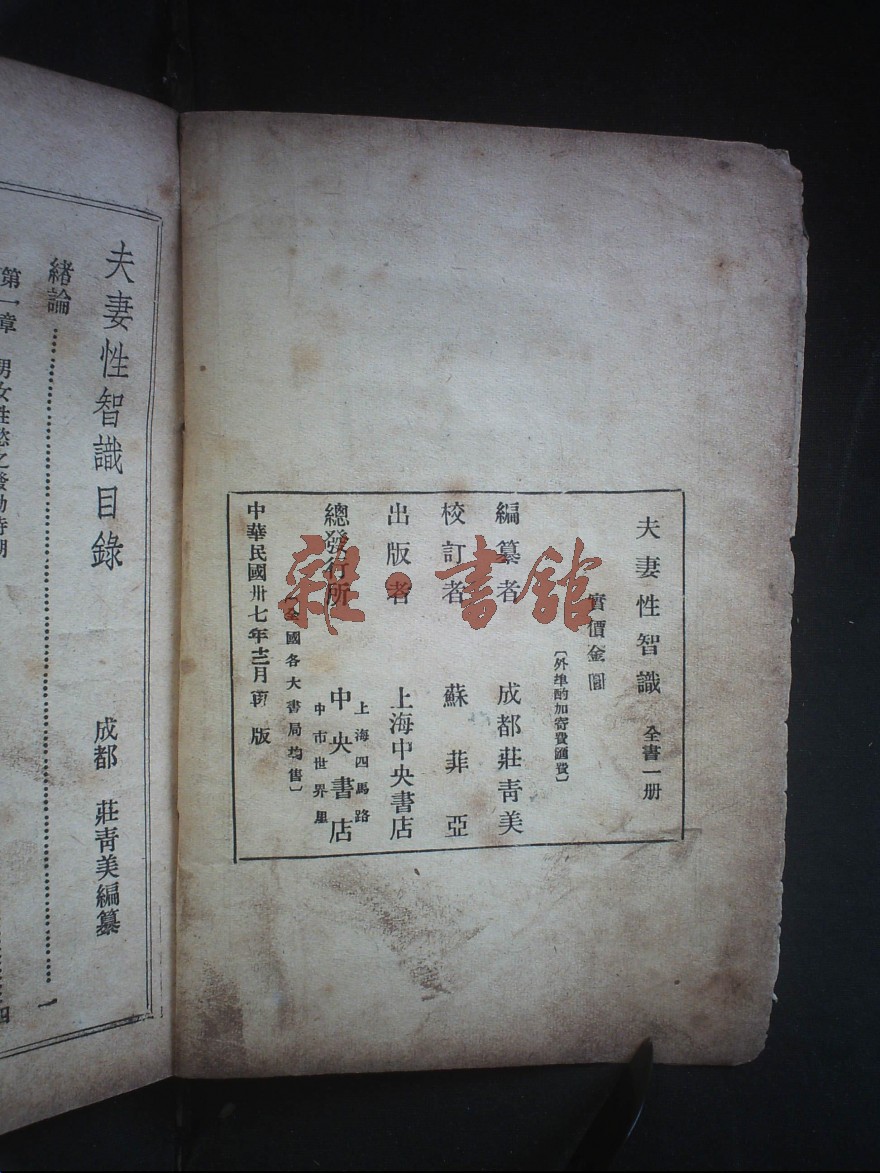 夫妻性智識 全書一册
實價金圓
〔外埠酌加寄費匯費〕
編纂者 成都莊靑美
校訂者 蘇菲亞
出版者 上海中央書店
總發行所 中央書店
上海四馬路
中市世界里
〔全國各大書局均售〕
中華民國卅七年十二月再版
雜·書館
夫妻性智識目錄
成都 莊靑美編纂
緒論……一
第一章 男女性慾之發動時期
四